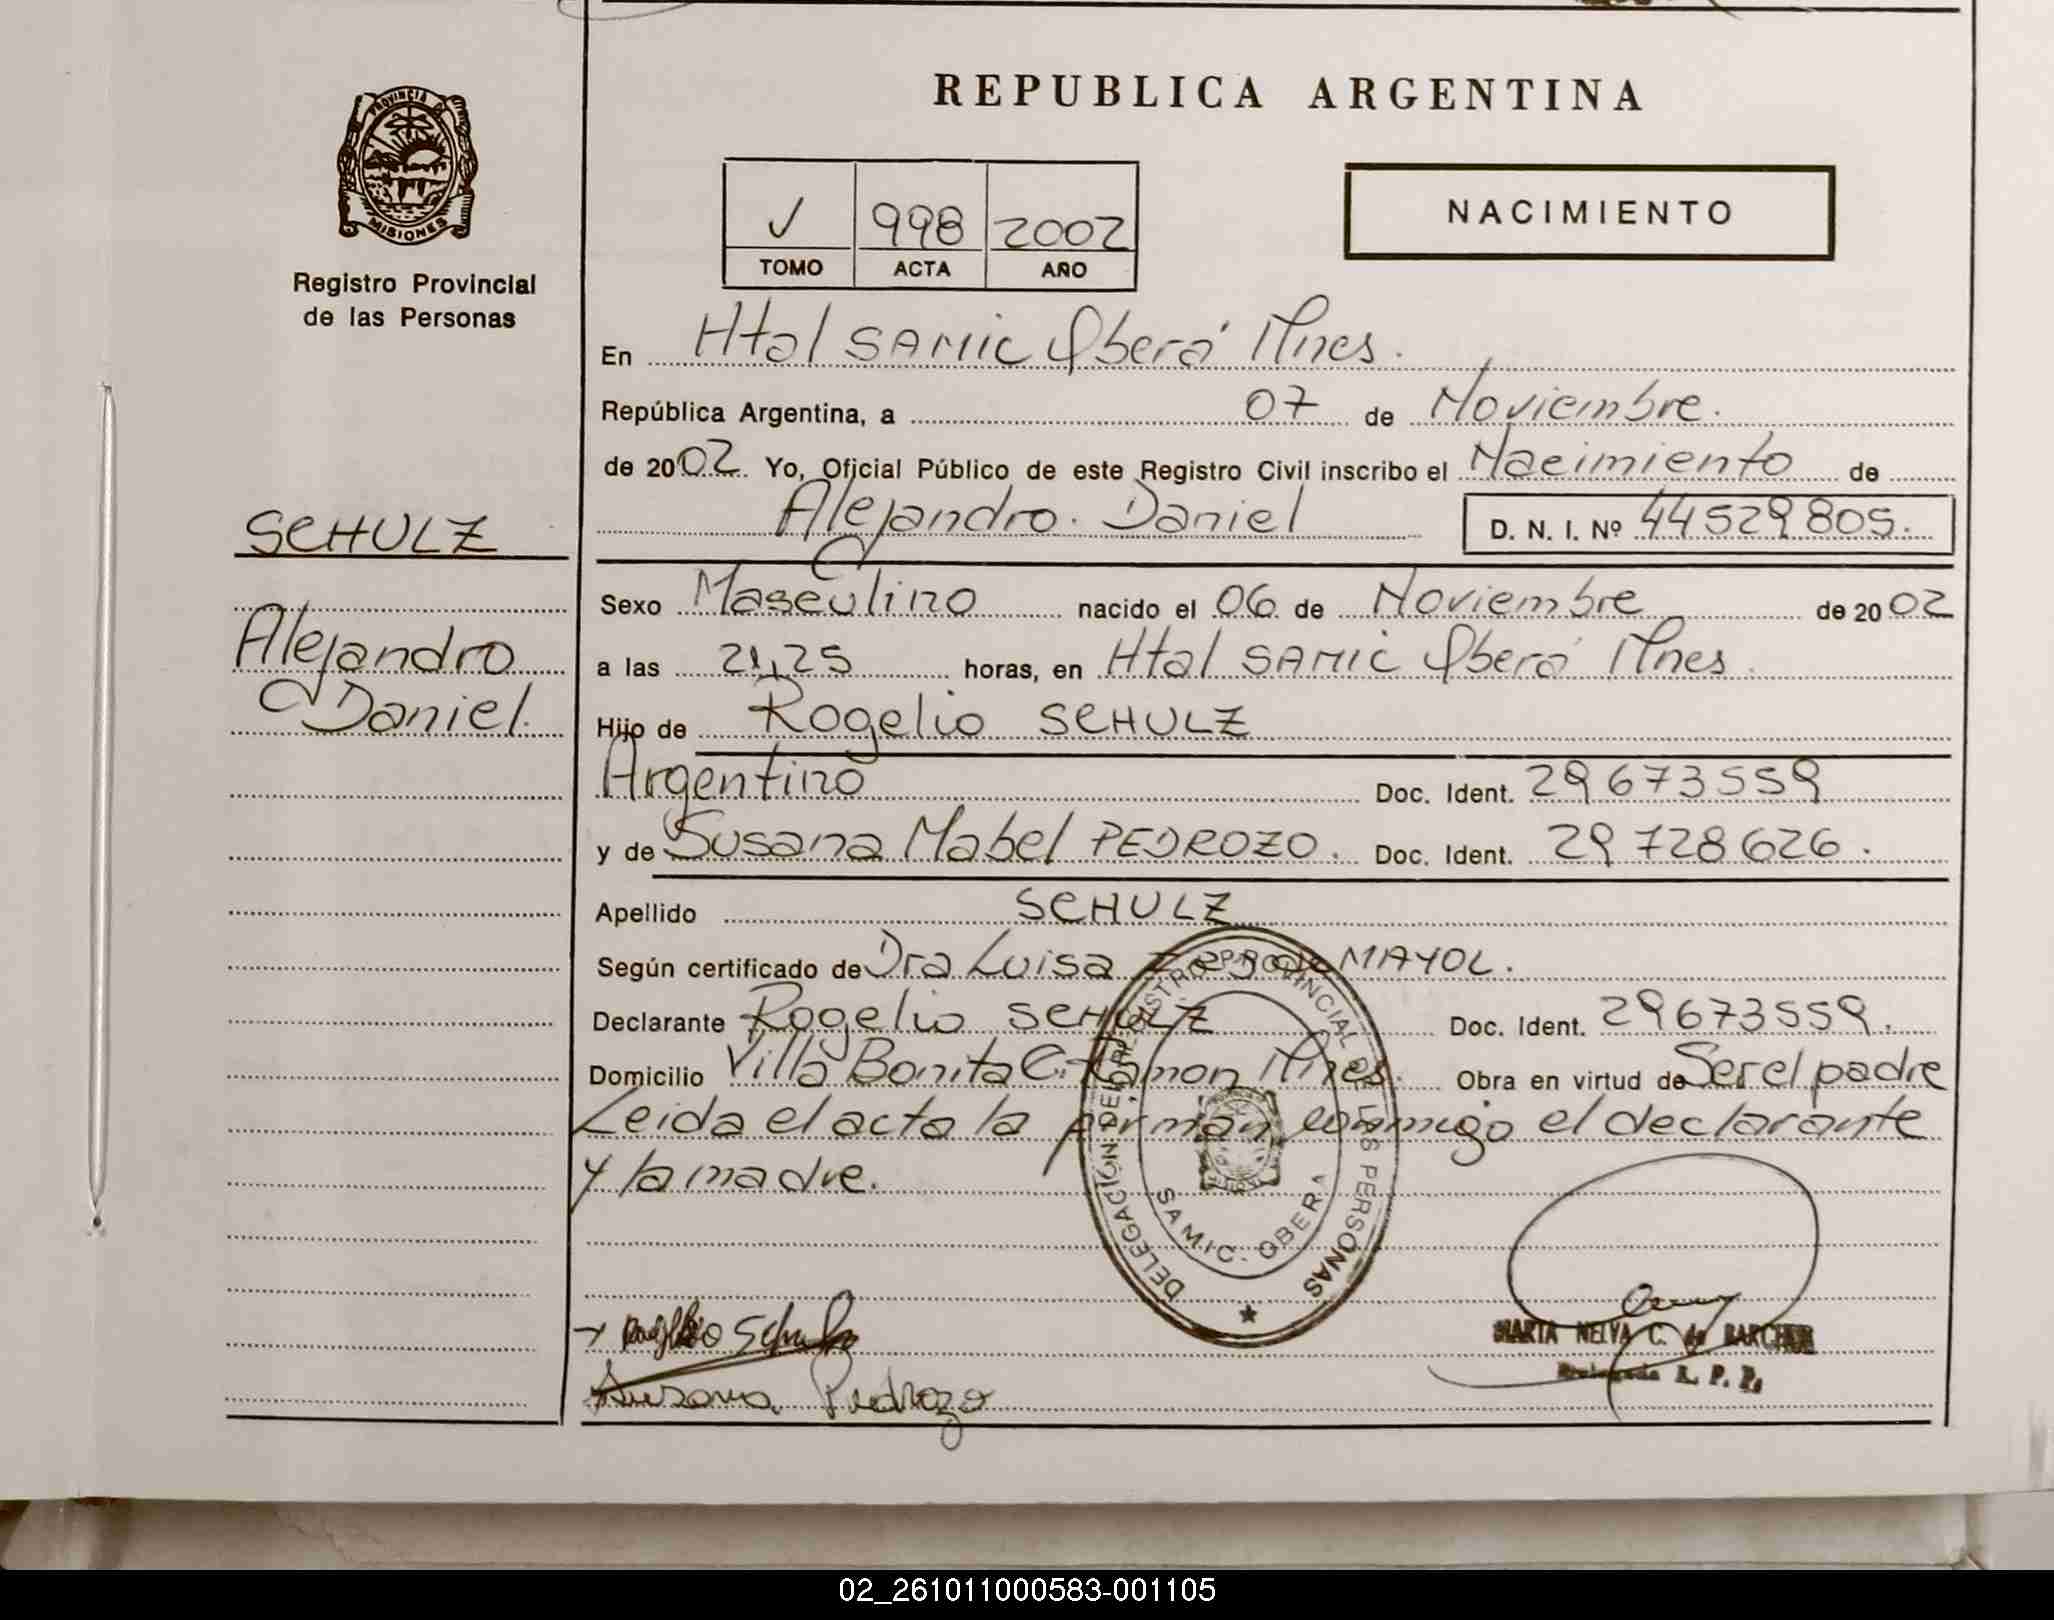 REPUBLICA ARGENTINA
PROVINCIA DE MISIONES
Registro Provincial
de las Personas
NACIMIENTO
V 998 2002
TOMO ACTA AÑO
En Htal SAMIC Oberá Mnes.
República Argentina, a 07 de Noviembre.
de 2002. Yo, Oficial Público de este Registro Civil inscribo el Nacimiento de
Alejandro Daniel D. N. I. Nº 44529805.
SCHULZ
Alejandro
Daniel.
Sexo Masculino nacido el 06 de Noviembre de 2002
a las 21,25 horas, en Htal SAMIC Oberá Mnes.
Hijo de Rogelio SCHULZ
Argentino Doc. Ident. 29673559
y de Susana Mabel PEDROZO. Doc. Ident. 29728626.
Apellido SCHULZ
Según certificado de Dra Luisa de MAYOL.
Declarante Rogelio SCHULZ Doc. Ident. 29673559.
Domicilio Villa Bonita C. Ramon Mnes. Obra en virtud de Ser el padre
Leida el acta la firman conmigo el declarante
y la madre.
DELEGACIÓN DEL REGISTRO PROVINCIAL DE LAS PERSONAS
SAMIC. OBERA
Rogelio Schulz
Susana Pedrozo
MARTA NELVA C. de
Delegada R. P. P.
02_261011000583-001105